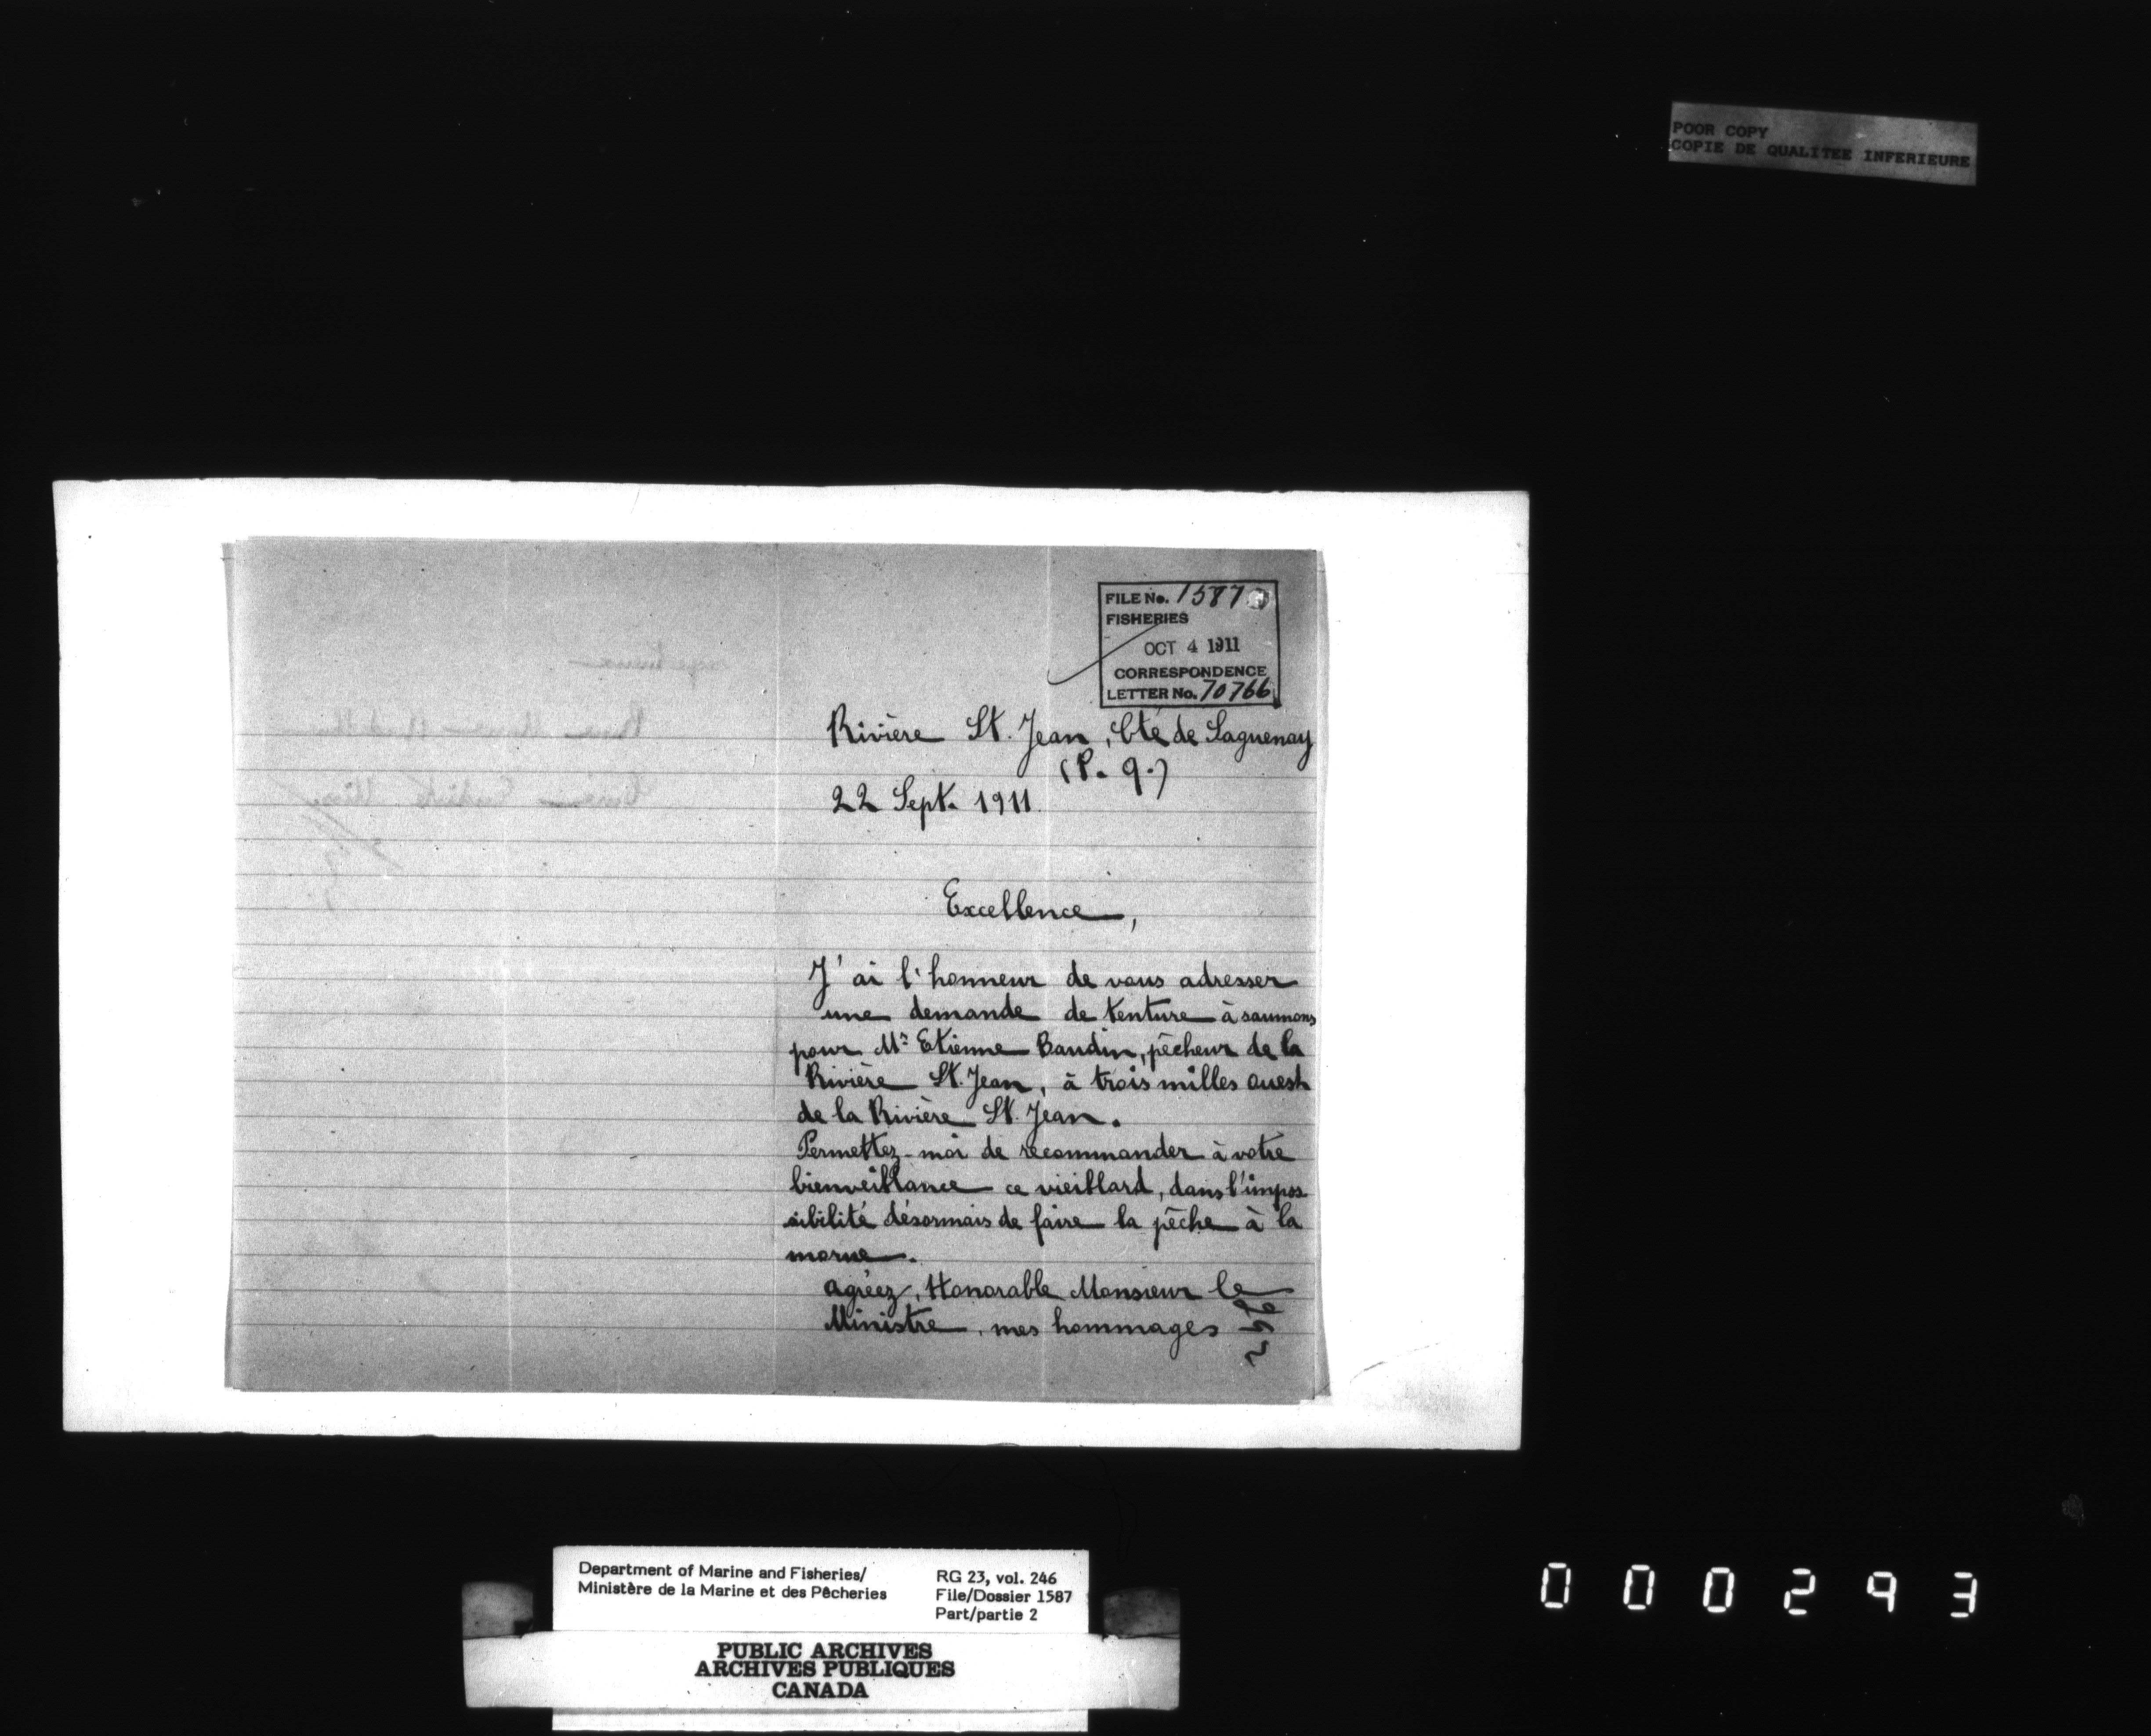 POOR COPY
COPIE DE QUALITEE INFERIEURE
FILE No. 1587
FISHERIES
OCT 4 1911
CORRESPONDENCE
LETTER No. 70766
Rivière St. Jean, Cté de Saguenay
(P. q.)
22 Sept. 1911.
Excellence,
J'ai l'honneur de vous adresser
une demande de tenture à saumons
pour Mr Etienne Baudin, pêcheur de la
Rivière St. Jean, à trois milles ouest
de la Rivière St. Jean.
Permettez-moi de recommander à votre
bienveillance ce vieillard, dans l'impos
sibilité désormais de faire la pêche à la
morue.
agréez, Honorable Monsieur le
Ministre, mes hommages
Department of Marine and Fisheries/
Ministère de la Marine et des Pêcheries
RG 23, vol. 246
File/Dossier 1587
Part/partie 2
PUBLIC ARCHIVES
ARCHIVES PUBLIQUES
CANADA
000293